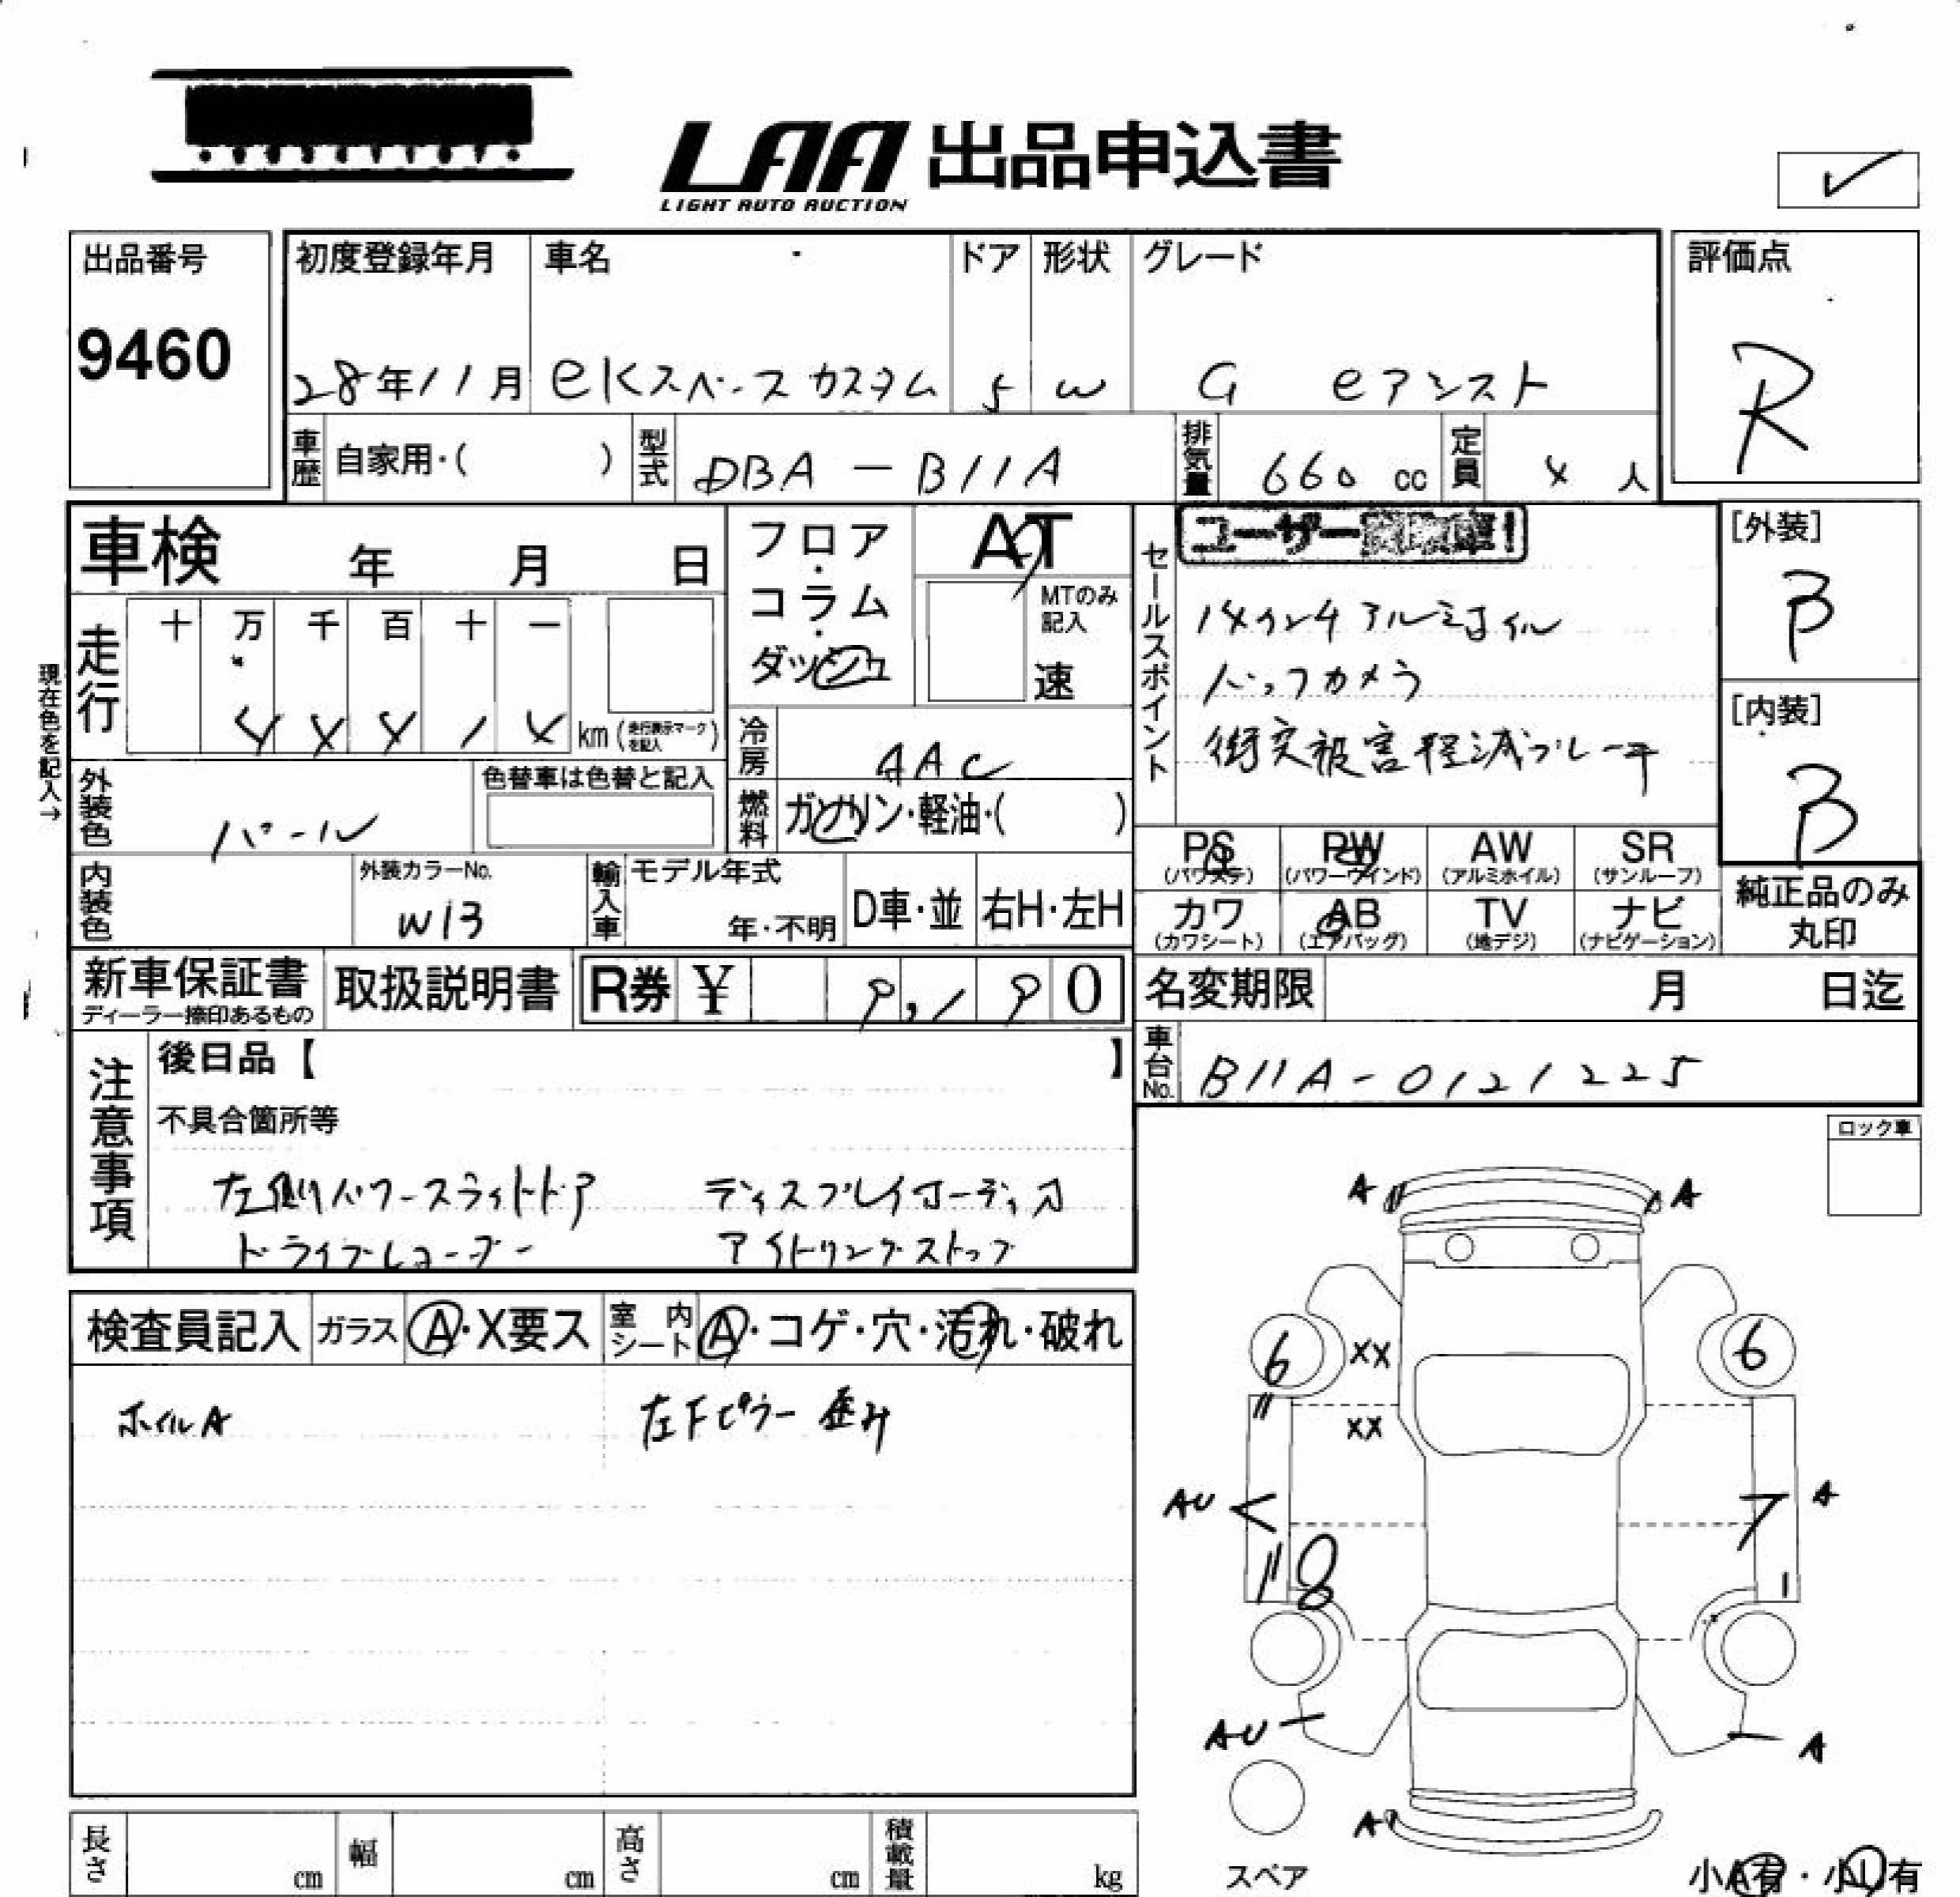 LAA 出品申込書
LIGHT AUTO AUCTION
出品番号
9460
初度登録年月 車名 ドア 形状 グレード
28年11月 eKスペース カスタム 5 W G eアシスト
評価点
R
車歴 自家用・( ) 型式 DBA-B11A 排気量 660 cc 定員 4 人
車検 年 月 日
フロア・コラム・ダッシュ
AT
MTのみ記入
速
走行 十 万 千 百 十 一
4 4 4 1 4 km (走行表示マークを記入)
現在色を記入→
冷房 AAC
燃料 ガソリン・軽油・( )
外装色 パール
色替車は色替と記入
内装色
外装カラーNo.
W13
輸入車 モデル年式
年・不明 D車・並 右H・左H
セールスポイント
ユーザー
14インチアルミホイル
バックカメラ
衝突被害軽減ブレーキ
[外装]
B
[内装]
B
PS (パワステ) PW (パワーウインド) AW (アルミホイル) SR (サンルーフ)
カワ (カワシート) AB (エアバッグ) TV (地デジ) ナビ (ナビゲーション)
純正品のみ丸印
新車保証書
ディーラー捺印あるもの
取扱説明書
R券 ¥ 9,190
名変期限 月 日迄
車台No. B11A-0121225
注意事項
後日品【 】
不具合箇所等
左側パワースライドドア ディスプレイオーディオ
ドライブレコーダー アイドリングストップ
ロック車
検査員記入 ガラス A・X要ス 室内シート A・コゲ・穴・汚れ・破れ
ホイルA 左Fピラー 歪み
A A
6 XX 6
XX
AU A
8
AU A
A
スペア
小A有・小U有
長さ cm 幅 cm 高さ cm 積載量 kg